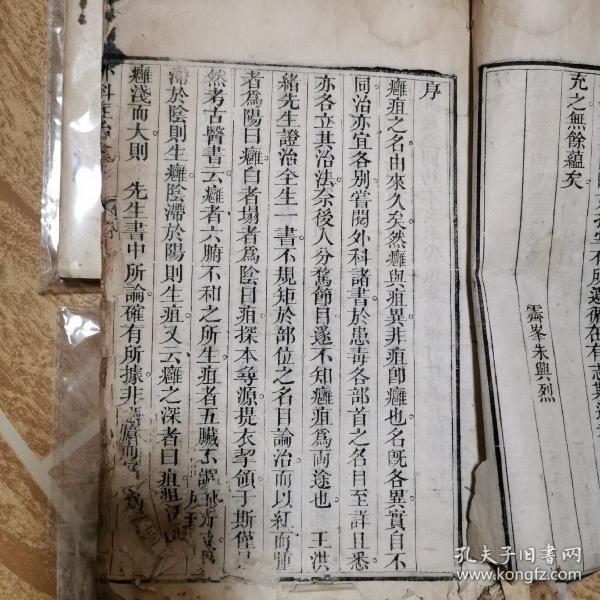 充之無餘蘊矣
霽峯朱興烈
序
癰疽之名由來久矣然癰與疽異非疽卽癰也名旣各異實自不
同治亦宜各別嘗閱外科諸書於患毒各部首之名目至詳且悉
亦各立其治法奈後人分舊節目遂不知癰疽爲兩途也 王洪
緒先生證治全生一書不規矩於部位之名目論治而以紅而腫
者爲陽曰癰白者塌者爲陰曰疽探本尋源提衣挈領于斯僅見
然考古醫書云癰者六腑不和之所生疽者五臟不
滯於陰則生癰陰滯於陽則生疽又云癰之深者曰疽疽
癰淺而大則 先生書中所論確有所據非
外科症治全
孔夫子旧書网
www.kongfz.com